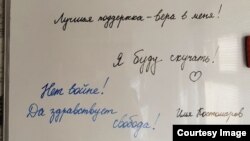 Лучшая поддержка - вера в меня!
Я буду скучать!
Нет войне!
Да здравствует
свобода!
Илья Костомаров
Courtesy Image